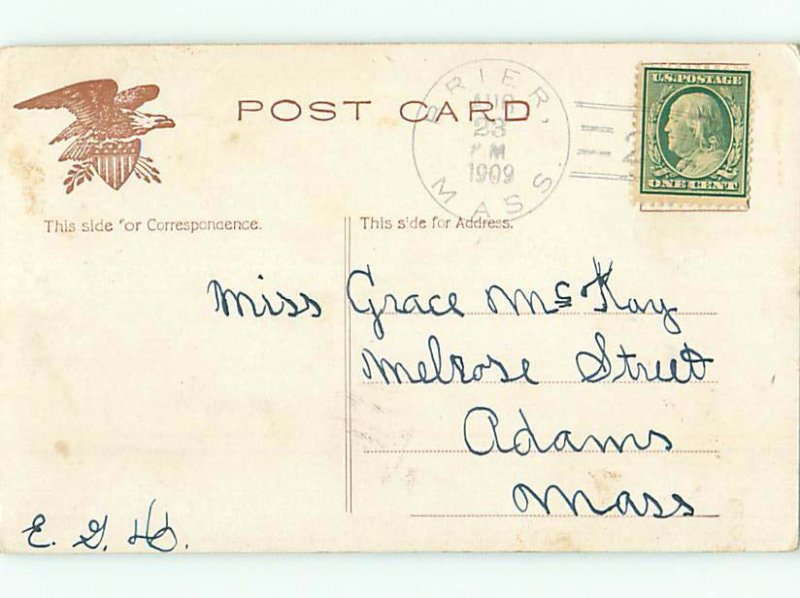 POST CARD
BRIER,
AUG
23
PM
1909
MASS.
U.S. POSTAGE
ONE CENT
This side for Correspondence.
This side for Address.
Miss Grace McKay
Melrose Street
Adams
Mass
E. G.